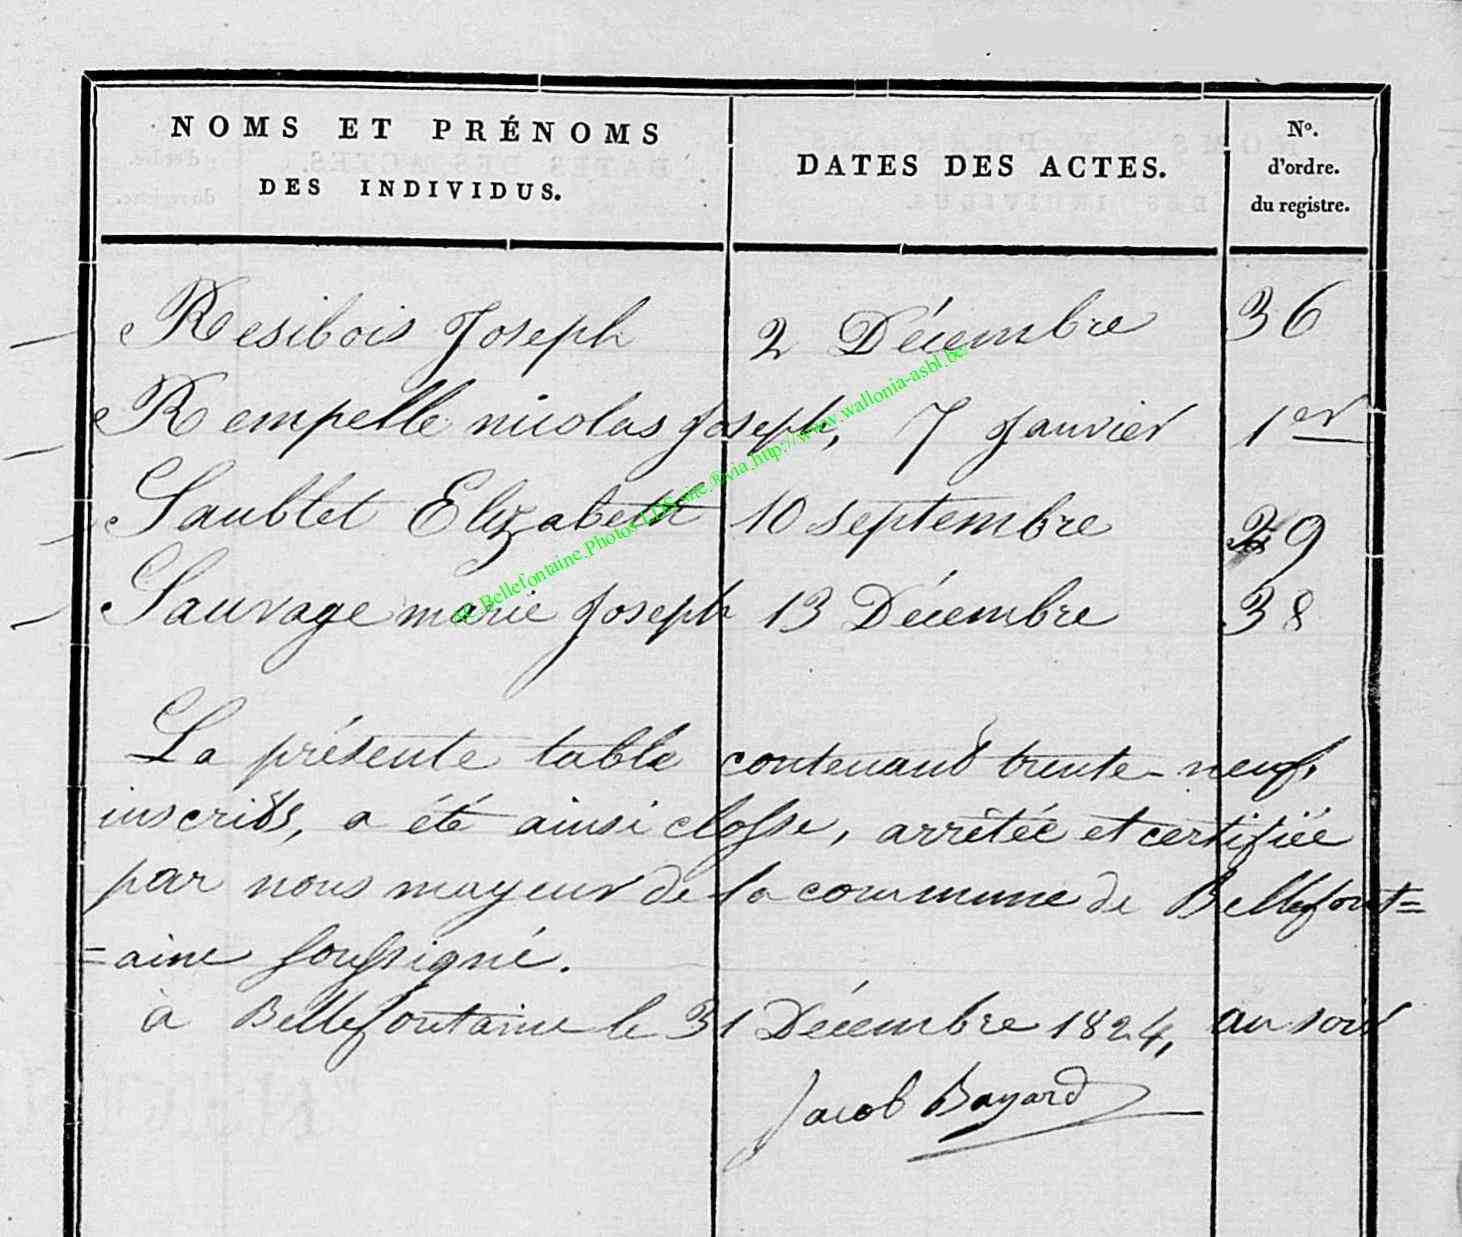 NOMS ET PRÉNOMS
DES INDIVIDUS.
DATES DES ACTES.
N°.
d'ordre.
du registre.
Resibois Joseph 2 Décembre 36
Rempelle nicolas Joseph, 7 Janvier 1er
Saublet Elizabeth 10 septembre 29
Sauvage marie Joseph 13 Décembre 38
La présente table contenant trente-neuf
inscrits, a été ainsi closse, arrêtée et certifiée
par nous mayeur de la commune de Bellefont=
=aine soussigné.
à Bellefontaine le 31 Décembre 1824, au soir
Jacob Bayard
Bellefontaine.Photos via http://www.wallonia-asbl.be/